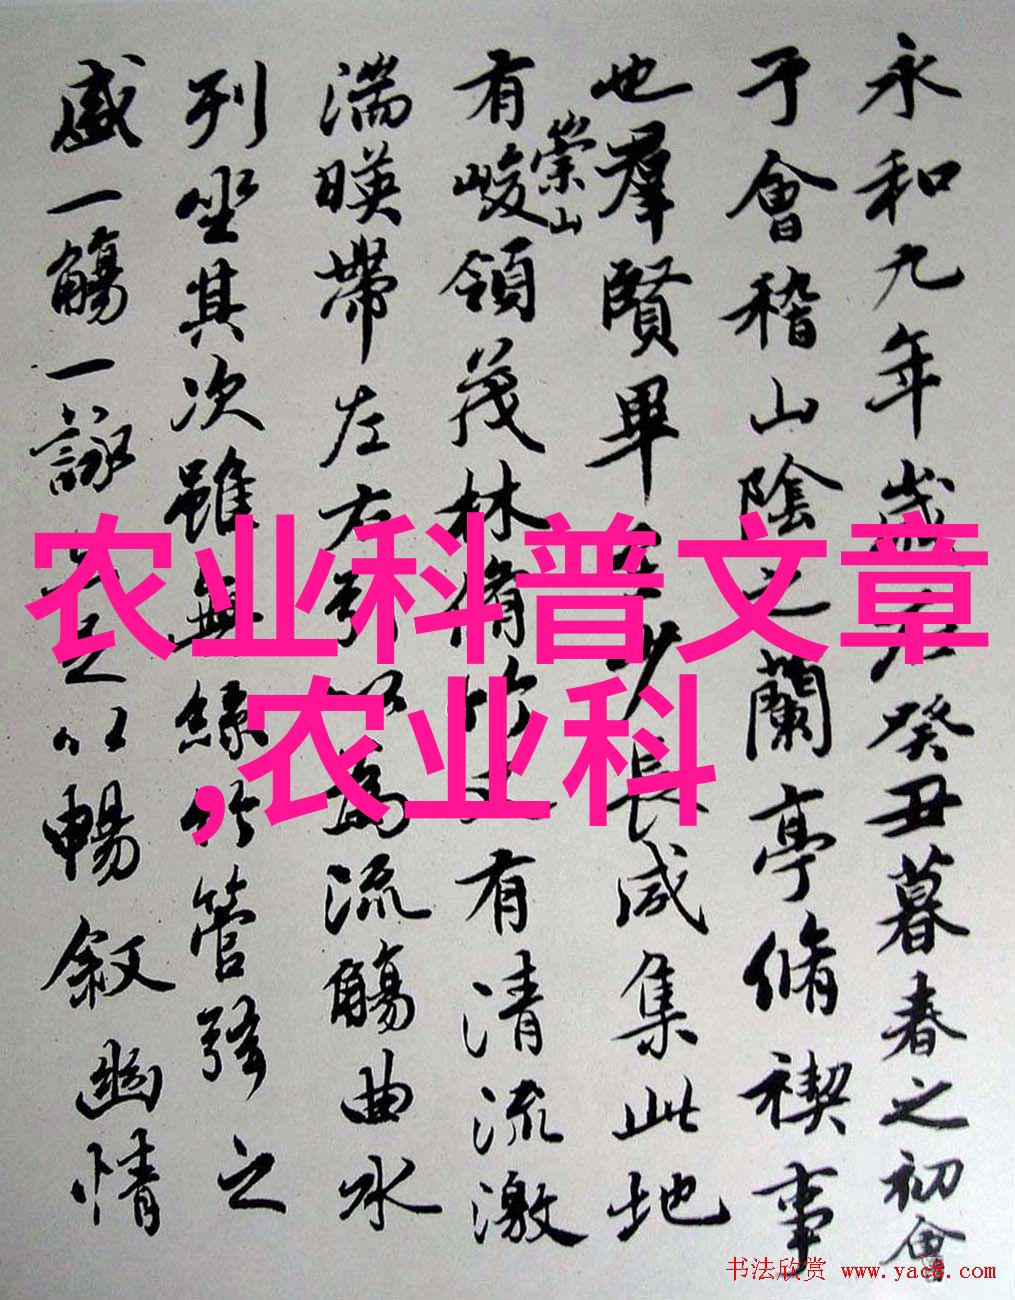 永和九年歲在癸丑暮春之初會
于會稽山陰之蘭亭脩禊事
也羣賢畢至少長咸集此地
有崇山峻領茂林脩竹又有清流激
湍暎帶左右引以為流觴曲水
列坐其次雖無絲竹管弦之
盛一觴一詠亦足以暢叙幽情
农业科普文章
,农业科
书法欣赏 www.yac8.com